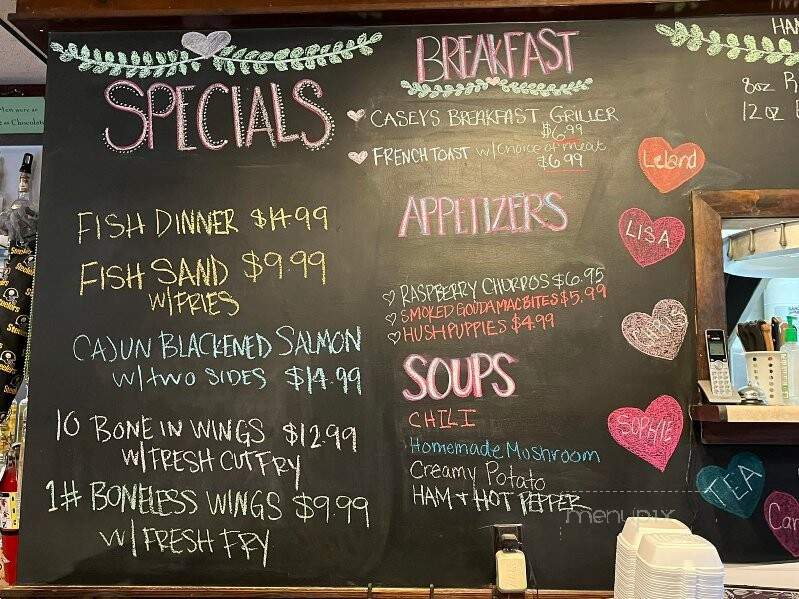 SPECIALS
FISH DINNER $14.99
FISH SAND $9.99
W/FRIES
CAJUN BLACKENED SALMON
W/TWO SIDES $14.99
10 BONE IN WINGS $12.99
W/FRESH CUT FRY
1# BONELESS WINGS $9.99
W/ FRESH FRY
BREAKFAST
CASEY'S BREAKFAST GRILLER
$6.99
FRENCH TOAST w/choice of meat
$6.99
APPETIZERS
RASPBERRY CHURROS $6.95
SMOKED GOUDA MAC BITES $5.99
HUSHPUPPIES $4.99
SOUPS
CHILI
Homemade Mushroom
Creamy Potato
HAM + HOT PEPPER
menupix
Leland
LISA
SOPHIE
TEA
Car
HAM
8oz R
12oz
Steelers